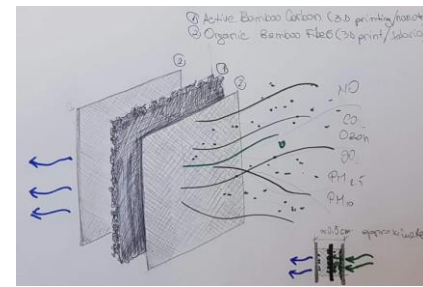 ① Active Bamboo Carbon (3D printing/
② Organic Bamboo Fiber (3D print/
②
①
②
NO
CO₂
Ozon
PM 2.5
PM 10
≈0.5cm approximate